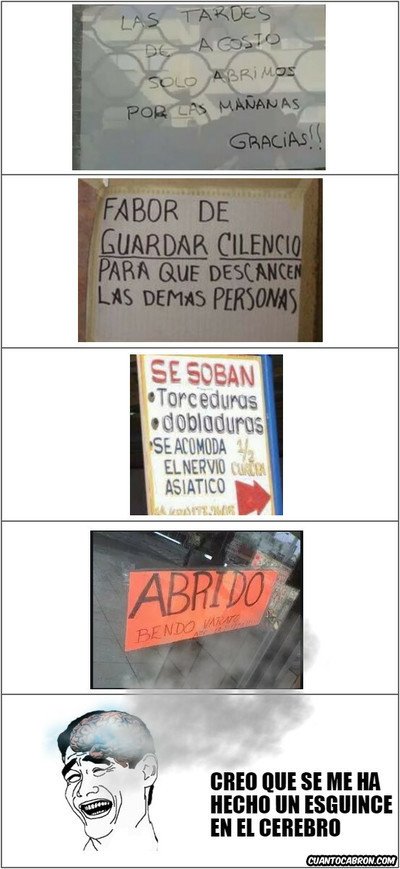 LAS TARDES
DE AGOSTO
SOLO ABRIMOS
POR LAS MAÑANAS
GRACIAS!!
FABOR DE
GUARDAR CILENCIO
PARA QUE DESCANCEN
LAS DEMAS PERSONAS
SE SOBAN
•Torceduras
•dobladuras
•SE ACOMODA 1/2
EL NERVIO CUADRA
ASIATICO
ABRIDO
BENDO VARATO
CREO QUE SE ME HA
HECHO UN ESGUINCE
EN EL CEREBRO
CUANTOCABRON.COM